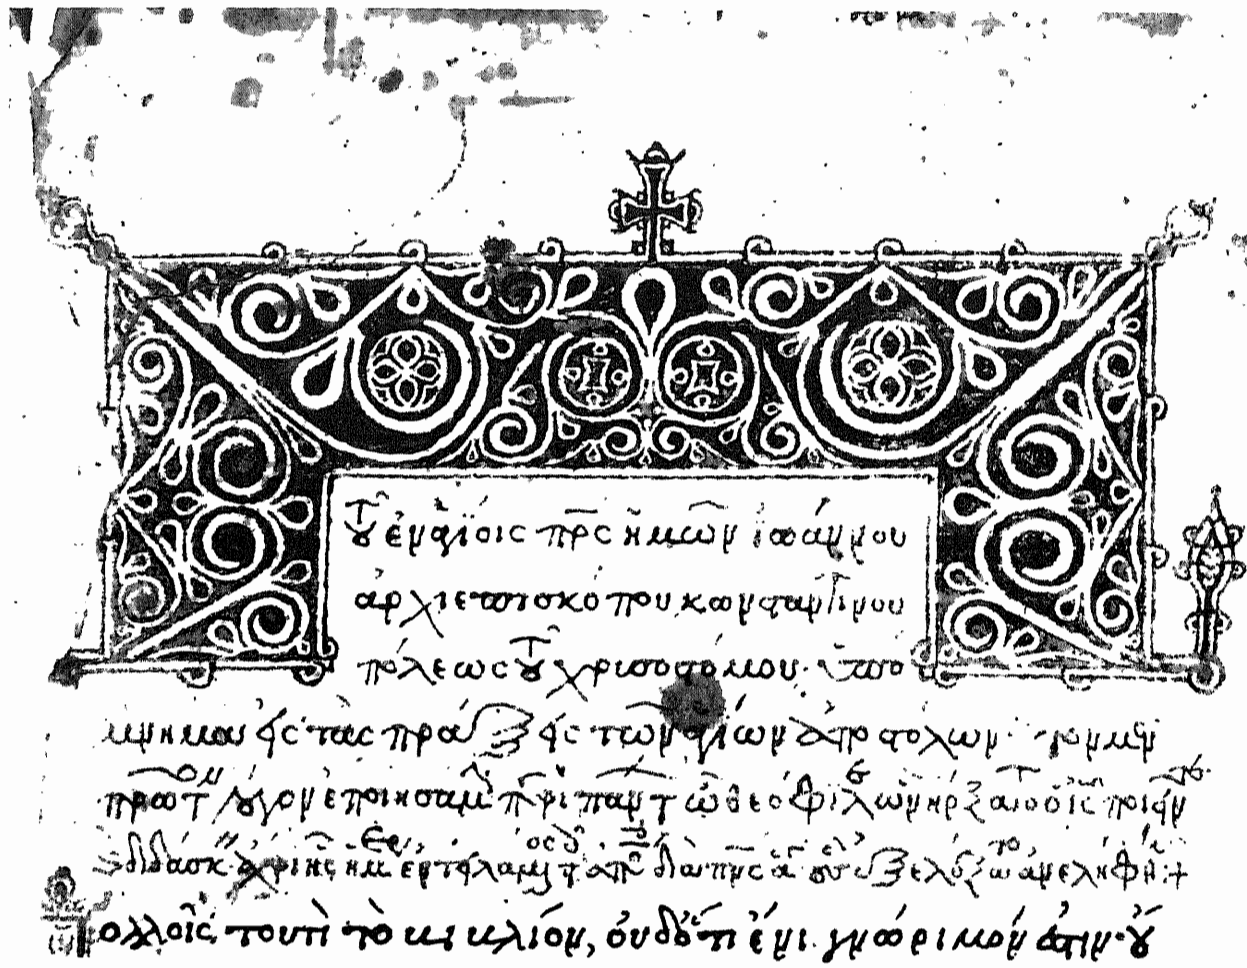 τοῦ ἐν ἁγίοις πρς ἡμῶν ἰωάννου
ἀρχιεπισκόπου κωνσταντίνου
πόλεως τοῦ χρυσοστόμου· ὑπό
μνημα εἰς τὰς πράξεις τῶν ἁγίων ἀποστόλων· τὸν μὲν
πρῶτον λόγον ἐποιησάμην περὶ πάντων ὦ θεόφιλε ὧν ἤρξατο ὁ ις ποιεῖν
διδάσκ ἄχρι ἧς ἡμέρ ἐντειλάμενος τοῖς ἀπο διὰ πνς ἁγίου οὓς ἐξελέξατο ἀνελήφθη +
Πολλοῖς τουτὶ τὸ βιβλίον, οὐδ' ὅτι ἔνι γνώριμόν ἐστιν· οὔ